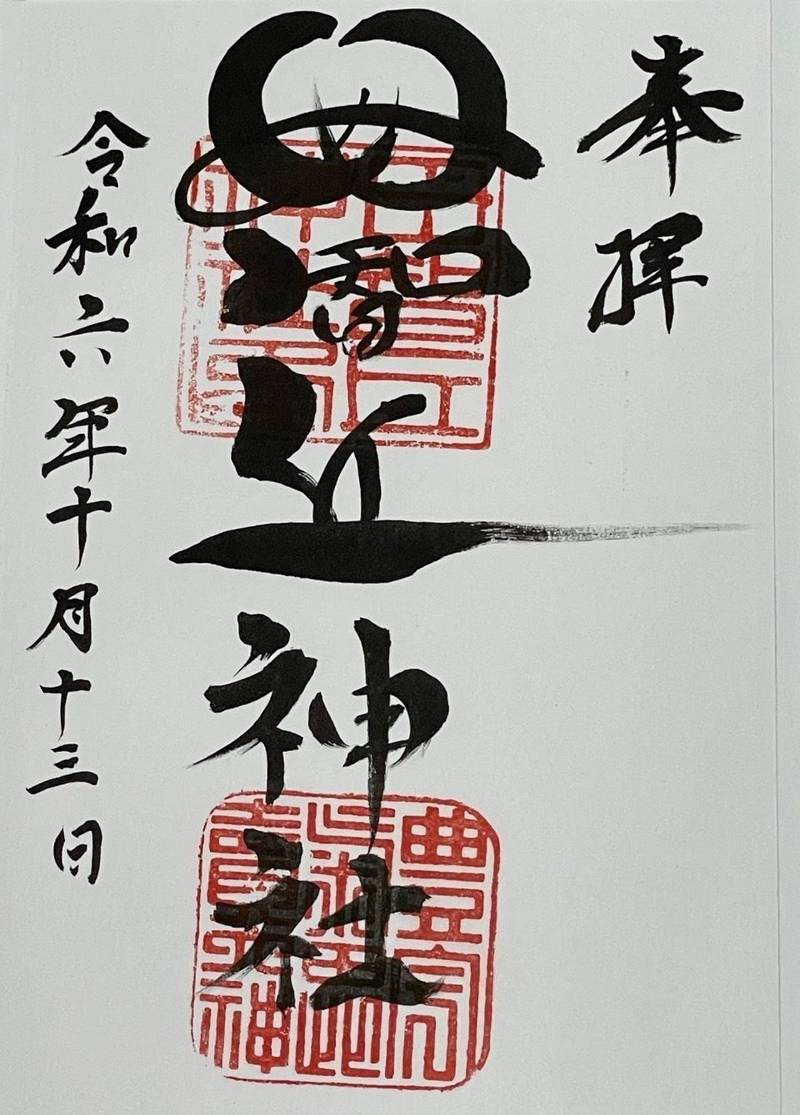 奉拝
母智丘神社
令和六年十月十三日